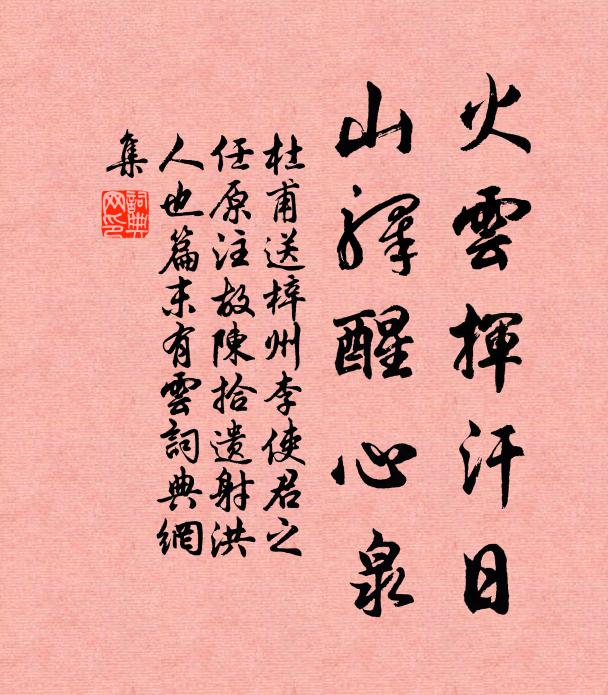 火雲揮汗日
山驛醒心泉
杜甫送梓州李使君之
任原注故陳拾遺射洪
人也篇末有雲詞典網
集
詞典
网印